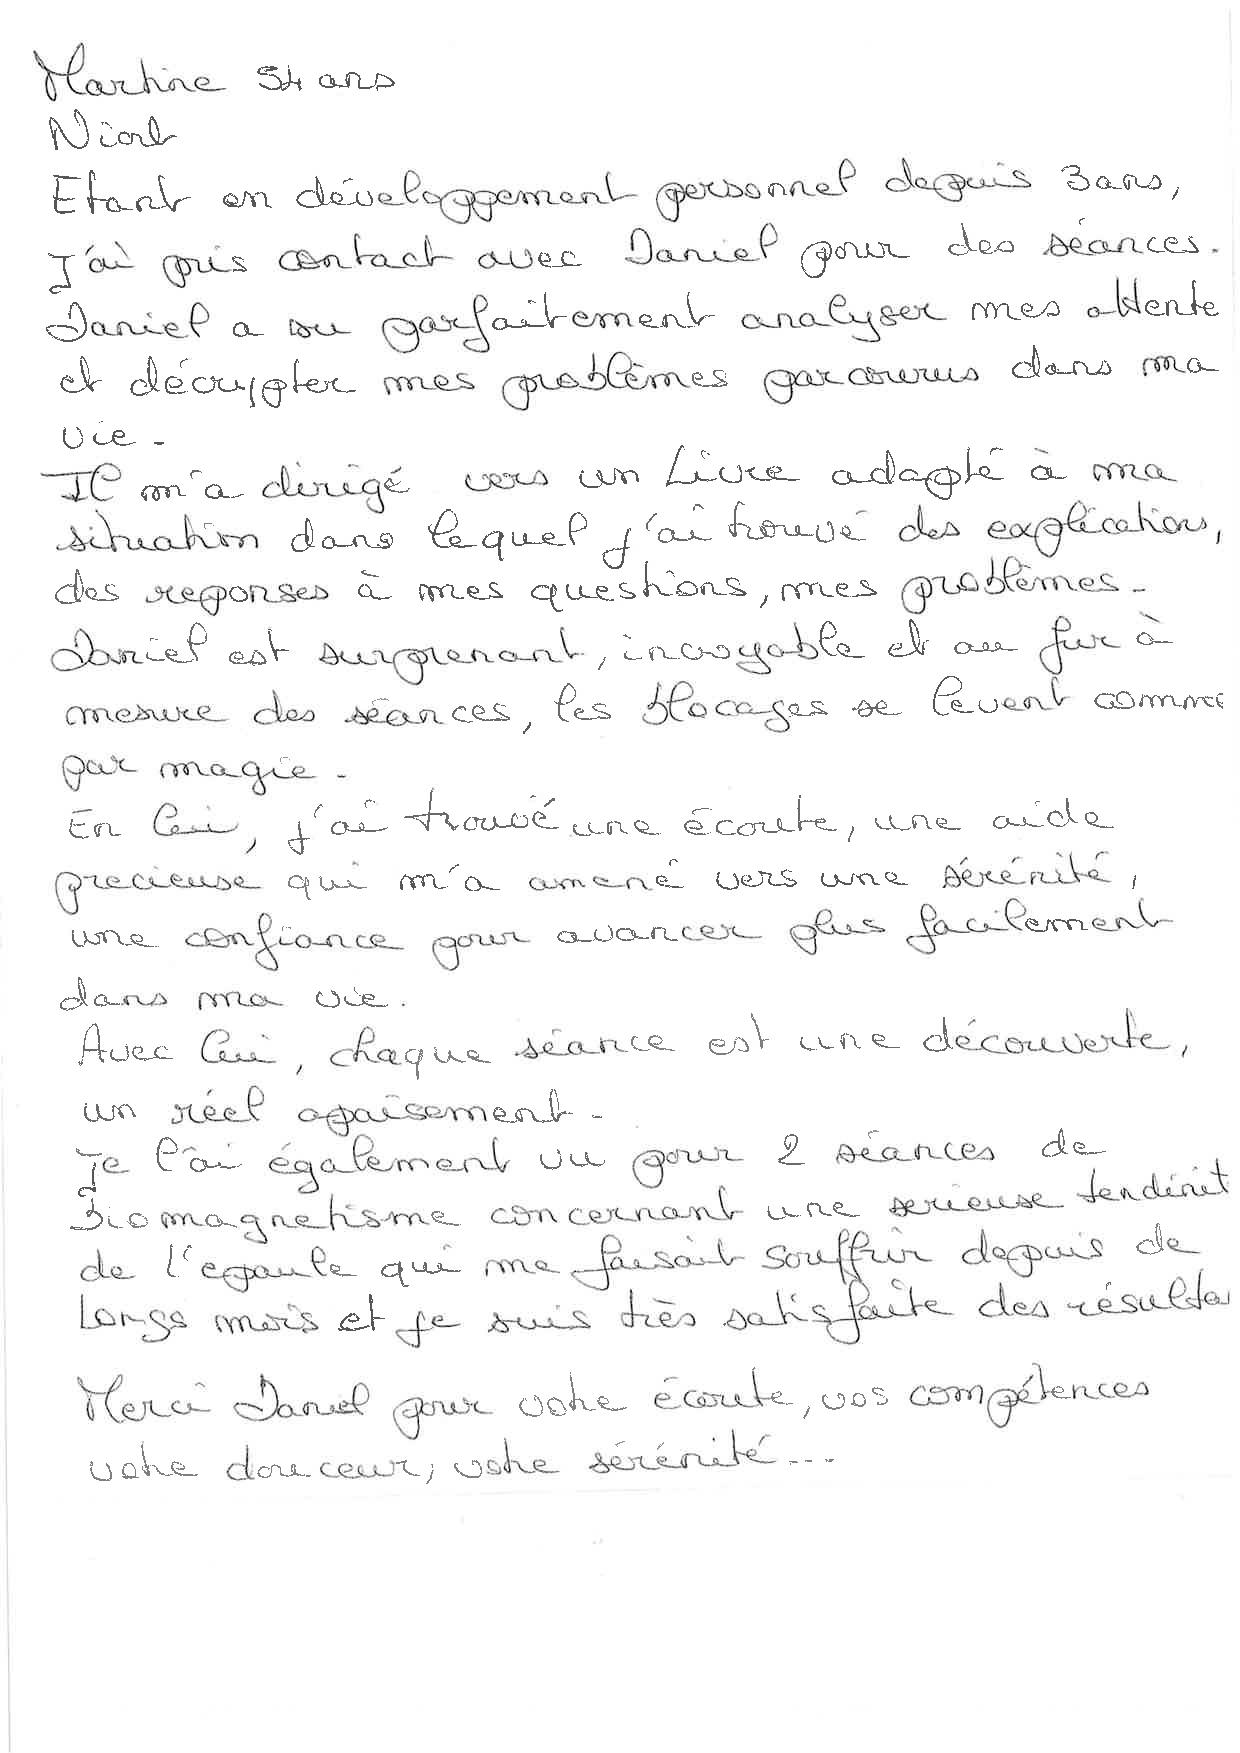 Martine 54 ans
Niort
Etant en développement personnel depuis 3 ans,
j'ai pris contact avec Daniel pour des séances.
Daniel a su parfaitement analyser mes attente
et décrypter mes problèmes parcourus dans ma
vie -
Il m'a dirigé vers un Livre adapté à ma
situation dans lequel j'ai trouvé des explications,
des reponses à mes questions, mes problèmes -
Daniel est surprenant, incroyable et au fur à
mesure des séances, les blocages se levent comme
par magie -
En lui, j'ai trouvé une écoute, une aide
precieuse qui m'a amené vers une sérénité,
une confiance pour avancer plus facilement
dans ma vie.
Avec lui, chaque séance est une découverte,
un réel apaisement -
Je l'ai également vu pour 2 séances de
Biomagnetisme concernant une serieuse tendinit
de l'epaule qui me faisait souffrir depuis de
longs mois et je suis très satisfaite des résulta
Merci Daniel pour votre écoute, vos compétences
votre douceur, votre sérénité ...